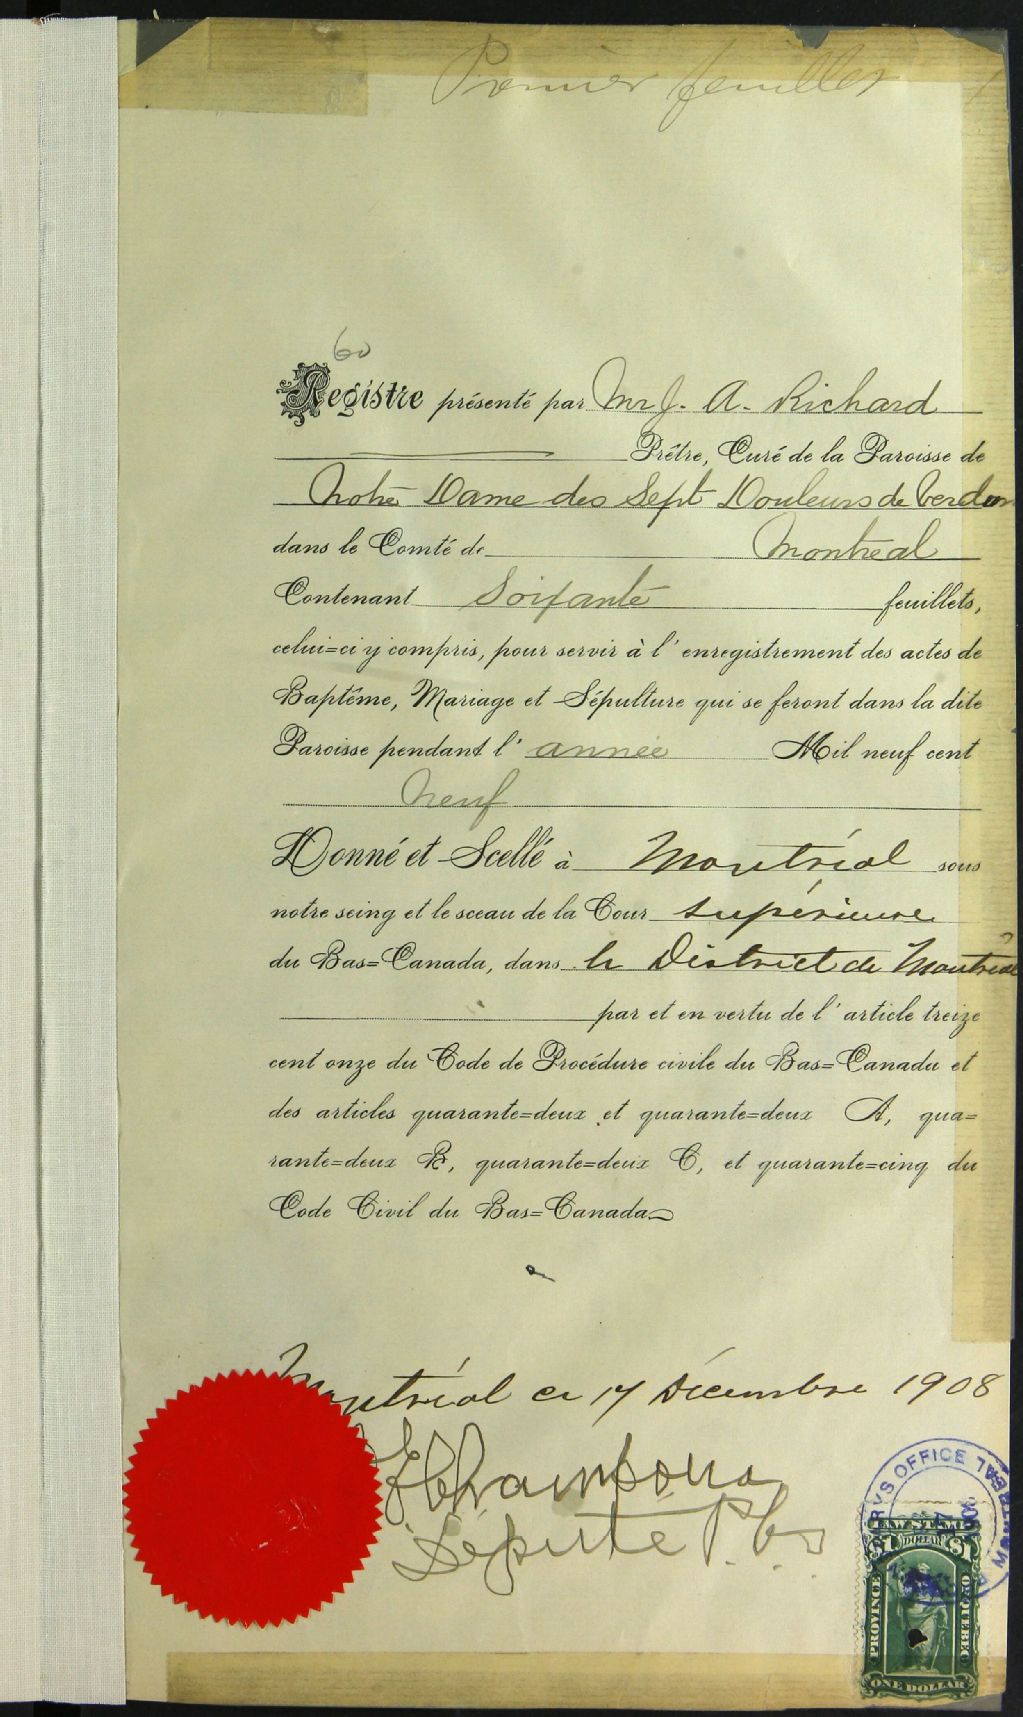 Premier feuillet 1
60
Registre présenté par Mr J. A. Richard
Prêtre, Curé de la Paroisse de
Notre Dame des Sept Douleurs de Verdun
dans le Comté de Montreal
Contenant Soixante feuillets,
celui=ci y compris, pour servir à l'enregistrement des actes de
Baptême, Mariage et Sépulture qui se feront dans la dite
Paroisse pendant l'année Mil neuf cent
Neuf
Donné et Scellé à Montréal sous
notre seing et le sceau de la Cour supérieure
du Bas=Canada, dans le District de Montréal
par et en vertu de l'article treize
cent onze du Code de Procédure civile du Bas=Canada et
des articles quarante=deux et quarante=deux A, qua=
rante=deux B, quarante=deux C, et quarante=cinq du
Code Civil du Bas=Canada
Montréal ce 17 Décembre 1908
Député P.C.S.
OFFICE MONTREAL
LAW STAMP
$1 DOLLAR $1
PROVINCE OF QUEBEC
ONE DOLLAR